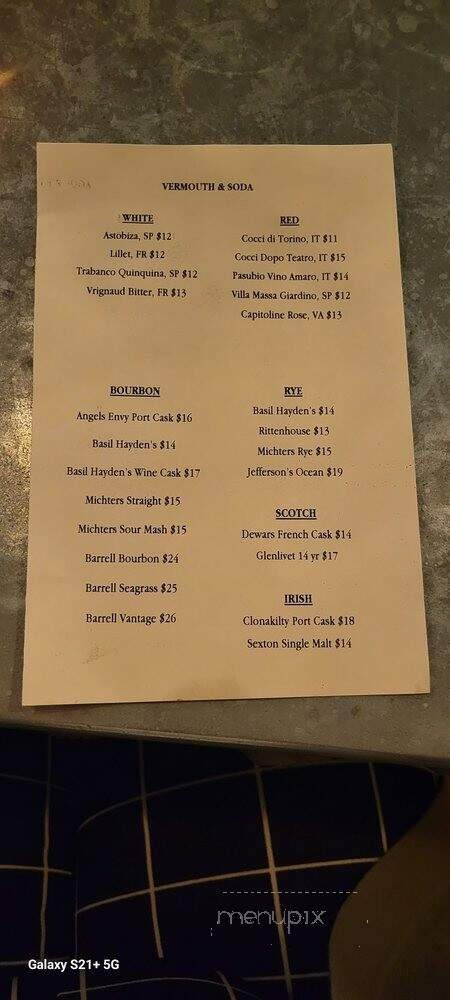 VERMOUTH & SODA
WHITE
Astobiza, SP $12
Lillet, FR $12
Trabanco Quinquina, SP $12
Vrignaud Bitter, FR $13
RED
Cocci di Torino, IT $11
Cocci Dopo Teatro, IT $15
Pasubio Vino Amaro, IT $14
Villa Massa Giardino, SP $12
Capitoline Rose, VA $13
BOURBON
Angels Envy Port Cask $16
Basil Hayden's $14
Basil Hayden's Wine Cask $17
Michters Straight $15
Michters Sour Mash $15
Barrell Bourbon $24
Barrell Seagrass $25
Barrell Vantage $26
RYE
Basil Hayden's $14
Rittenhouse $13
Michters Rye $15
Jefferson's Ocean $19
SCOTCH
Dewars French Cask $14
Glenlivet 14 yr $17
IRISH
Clonakilty Port Cask $18
Sexton Single Malt $14
menupix
Galaxy S21+ 5G